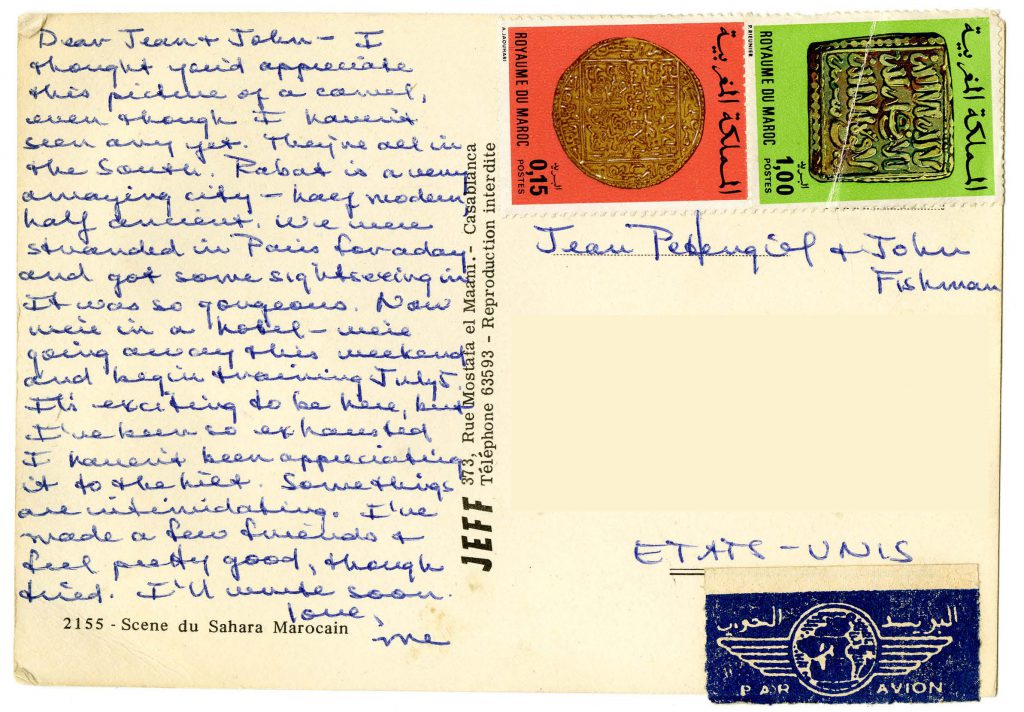 Dear Jean + John - I
thought you'd appreciate
this picture of a camel,
even though I haven't
seen any yet. They're all in
the South. Rabat is a very
amazing city - half modern,
half ancient. We were
stranded in Paris for a day
and got some sightseeing in
It was so gorgeous. Now
we're in a hotel - we're
going away this weekend
and begin training July 5.
It's exciting to be here, but
I've been so exhausted
I haven't been appreciating
it to the hilt. Some things
are intimidating. I've
made a few friends +
feel pretty good, though
tried. I'll write soon.
love,
me
2155 - Scene du Sahara Marocain
JEFF 373, Rue Mostafa el Maani. - Casablanca
Téléphone 63593 - Reproduction interdite
A. JAOUHARI
ROYAUME DU MAROC
POSTES
0,15
البريد
المملكة المغربية
P. RIEUNIER
ROYAUME DU MAROC
POSTES
1,00
البريد
المملكة المغربية
Jean + John
Fishman
ETATS-UNIS
البريد الجوي
PAR AVION